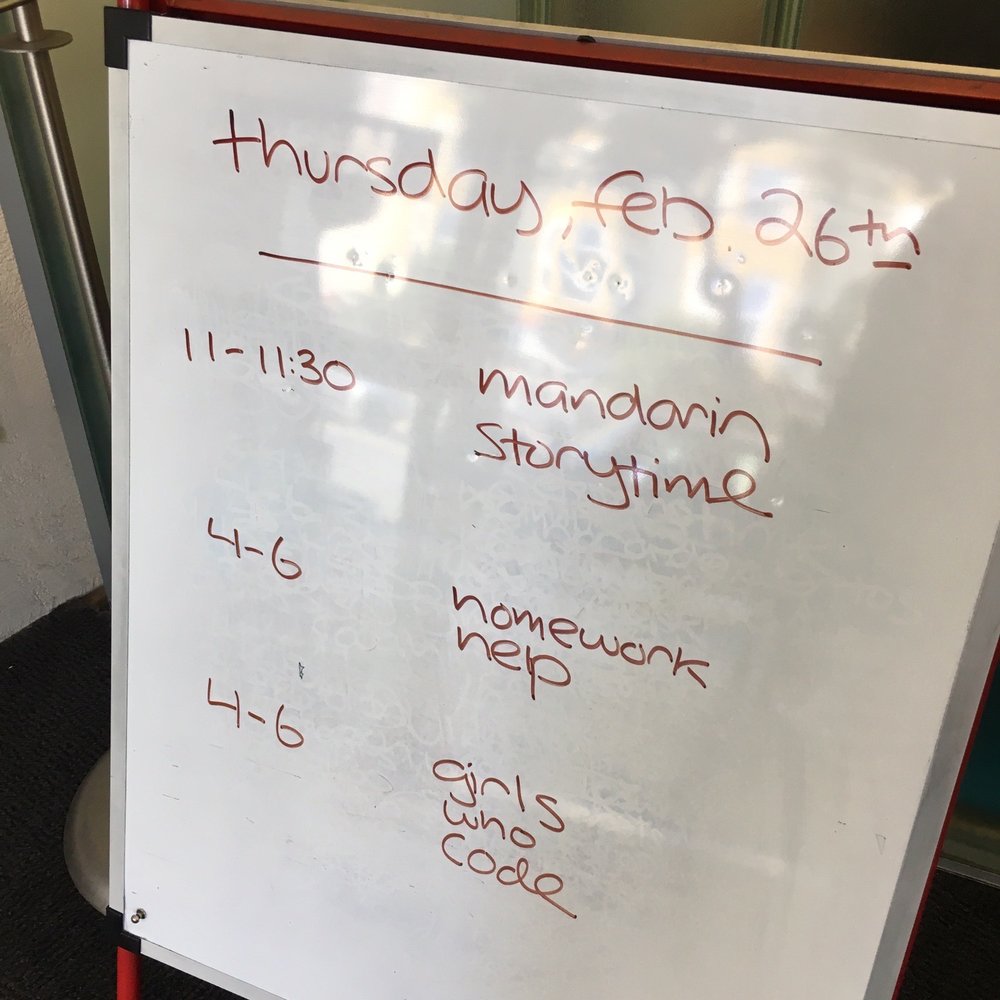 thursday, feb. 26th
11-11:30 mandarin
storytime
4-6 homework
help
4-6 girls
who
code